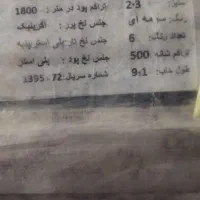 سایز: 2-3 تراکم پود در متر: 1800
رنگ: سرمه ای جنس نخ پرز: آکریلیک
تعداد رنگ: 6 جنس نخ تار: پلی استر پنبه
تراکم شانه: 500 جنس نخ پود: پلی استر
طول خاب: 9:1 شماره سریال: 72،395